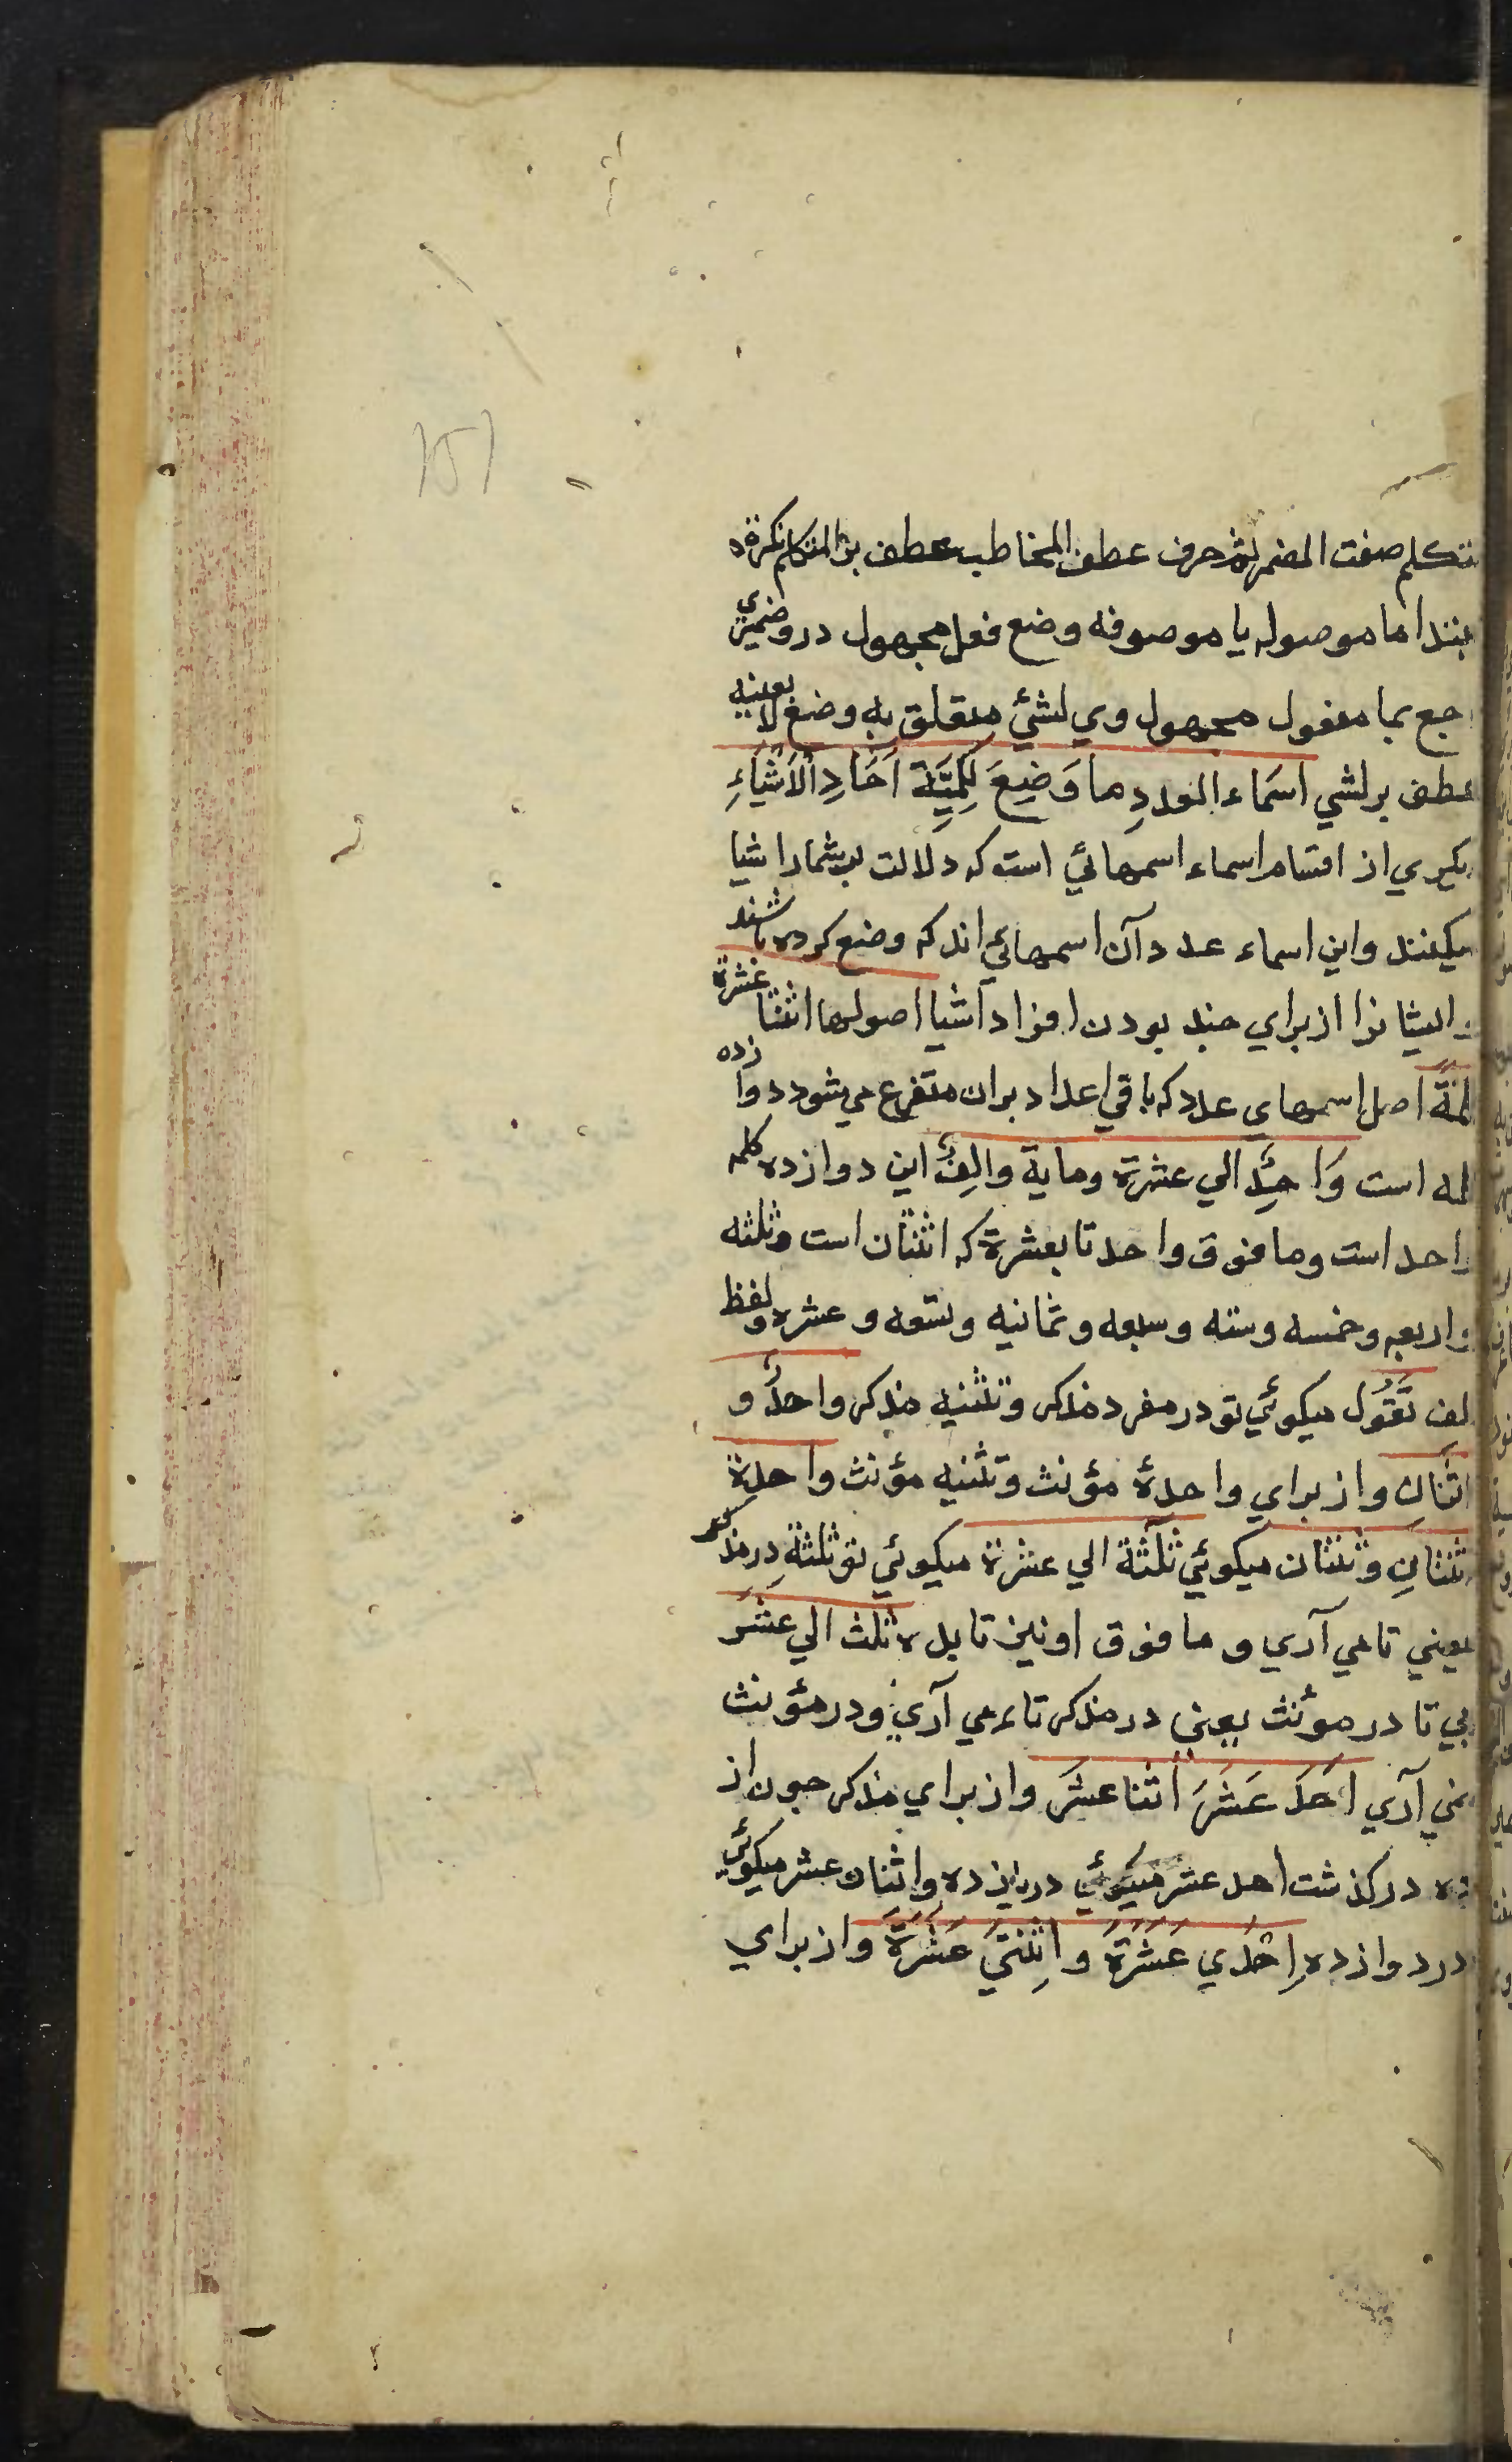 متكلم صفت المضمر ثم حرف عطف المخاطب عطف بر المتكلم نكرة
مبتدا ما موصوله يا موصوفه وضع فعل مجهول درو ضميري
راجع بما مفعول مجهول وي لشئ متعلق به وضع لا بعينه
عطف بر لشي اسَماء العددِ ما وَضِعَ لِكِمِّيَّة آحَادِ الْاَشْيَاءِ
ديكري از اقسام اسماء اسمهائي است كه دلالت بر شمار اشيا
ميكنند واين اسماء عدد آن اسمهائي اند كه وضع كرده باشند
ايشانرا از براي چند بودن افراد اشيا اصولها اثنتا عشرة
كلمَة اصل اسمهاي عدد كه باقي اعداد بران متفرع مي شود دوازده
كلمه است وَاحِدٌ الي عشرة وماية والفٌ اين دوازده كلمه
واحد است وما فوق واحد تا بعشرة كه اثنان است وثلثه
واربعه وخمسه وسته وسبعه وثمانيه وتسعه وعشره ولفظ
الف تَقُول ميكوئي تو در مفرد مذكر وتثنيه مذكر واحدٌ و
اثنانِ واز براي واحدة مؤنث وتثنيه مؤنث واحدة
اثنتانِ وثنتان ميكوئي ثلٰثة الي عشرة ميكوئي تو ثلثة در مذكر
يعني تا مي آري و ما فوق او نيز تا بده ثلث الي عشَر
بي تا در مؤنث يعني در مذكر تا مي آري ودر مؤنث
نمي آري احَدَ عَشَرَ اثنا عشَر واز براي مذكر چون از
ده در كذشت احد عشر ميكوئي در يازده واثنان عشر ميكوئي
در دوازده اِحْدي عَشَرَةَ وَاثِنْتَيْ عَشَرَةَ واز براي